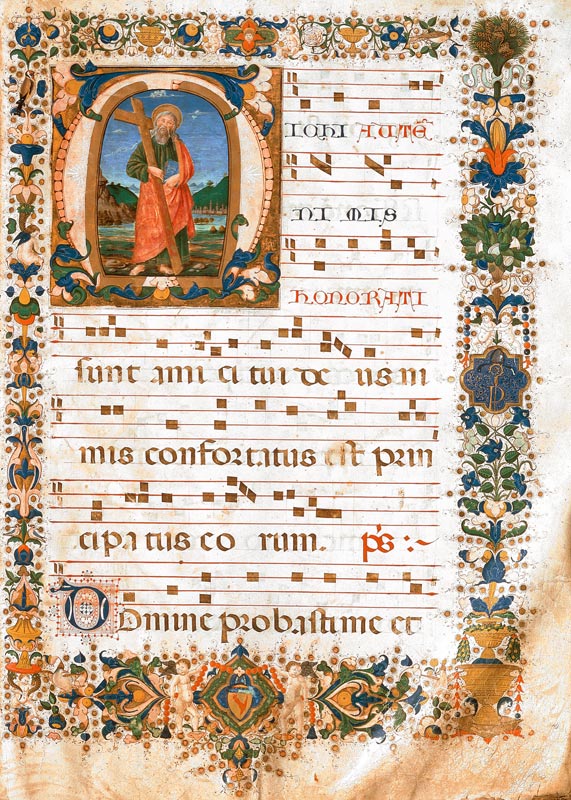 MICHI AUTĒ
NI MIS
HONORATI
sunt ami ci tui de us ni
mis confortatus est prin
cipatus eo rum. ps :~
Domine probastime et